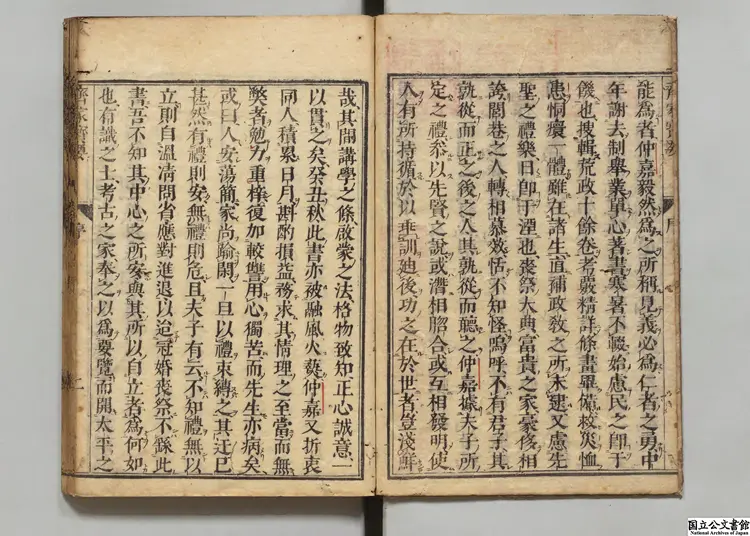 能爲者仲嘉毅然爲之所稱見義必爲仁者之勇中
年謝去制舉業草心著書寒暑不輟始慮民之卽于
饑也搜輯荒政十餘卷考嚴精詳條畫畢備救災恤
患恫瘝一體雖在諸生直補政敎之所未逮又慮先
聖之禮樂日卽于湮也喪祭大典富貴之家豪侈相
誇閭巷之人轉相慕效恬不知怪嗚呼不有君子其
孰從而正之後之人其孰從而聽之仲嘉據夫子所
定之禮叅以先賢之說或潛相脗合或互相發明使
人有所持循於以垂訓廸後功之在於世者豈淺鮮
哉其開講學之條啟蒙之法格物致知正心誠意一
以貫之矣癸丑秋此書亦被融風火爇仲嘉又折衷
同人積累日月斟酌損益務求其情理之至當而無
獘者勉力重梓復加較讐用心獨苦而先生亦病矣
或曰人安蕩簡家尚踰閑一旦以禮束縛之其迂已
甚然有禮則安無禮則危且夫子有云不知禮無以
立則自溫凊問省應對進退以迨冠婚喪祭不繇此
書吾不知其中心之所安與其所以自立者爲何如
也有識之士考古之家奉之以爲要覽而開太平之
齊家寶要 序 二
国立公文書館
National Archives of Japan